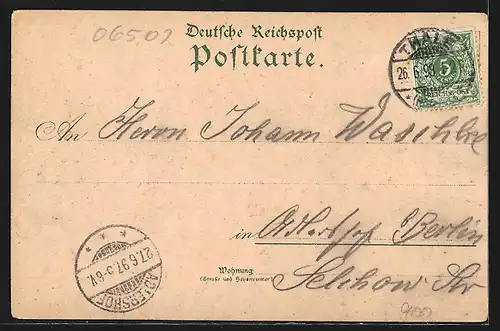 06502
Deutsche Reichspost
Postkarte.
THALE
26.6.9
5
An Herrn Johann Waschke
in Adlershof b/Berlin
Wohnung
(Strasse und Hausnummer)
Selchow Str
ADLERSHOF
27.6.97.5-6V.